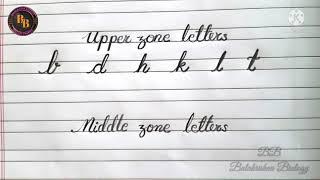 BB
Upper zone letters
b d h k l t
Middle zone letters
BB
Balakrishna Biology